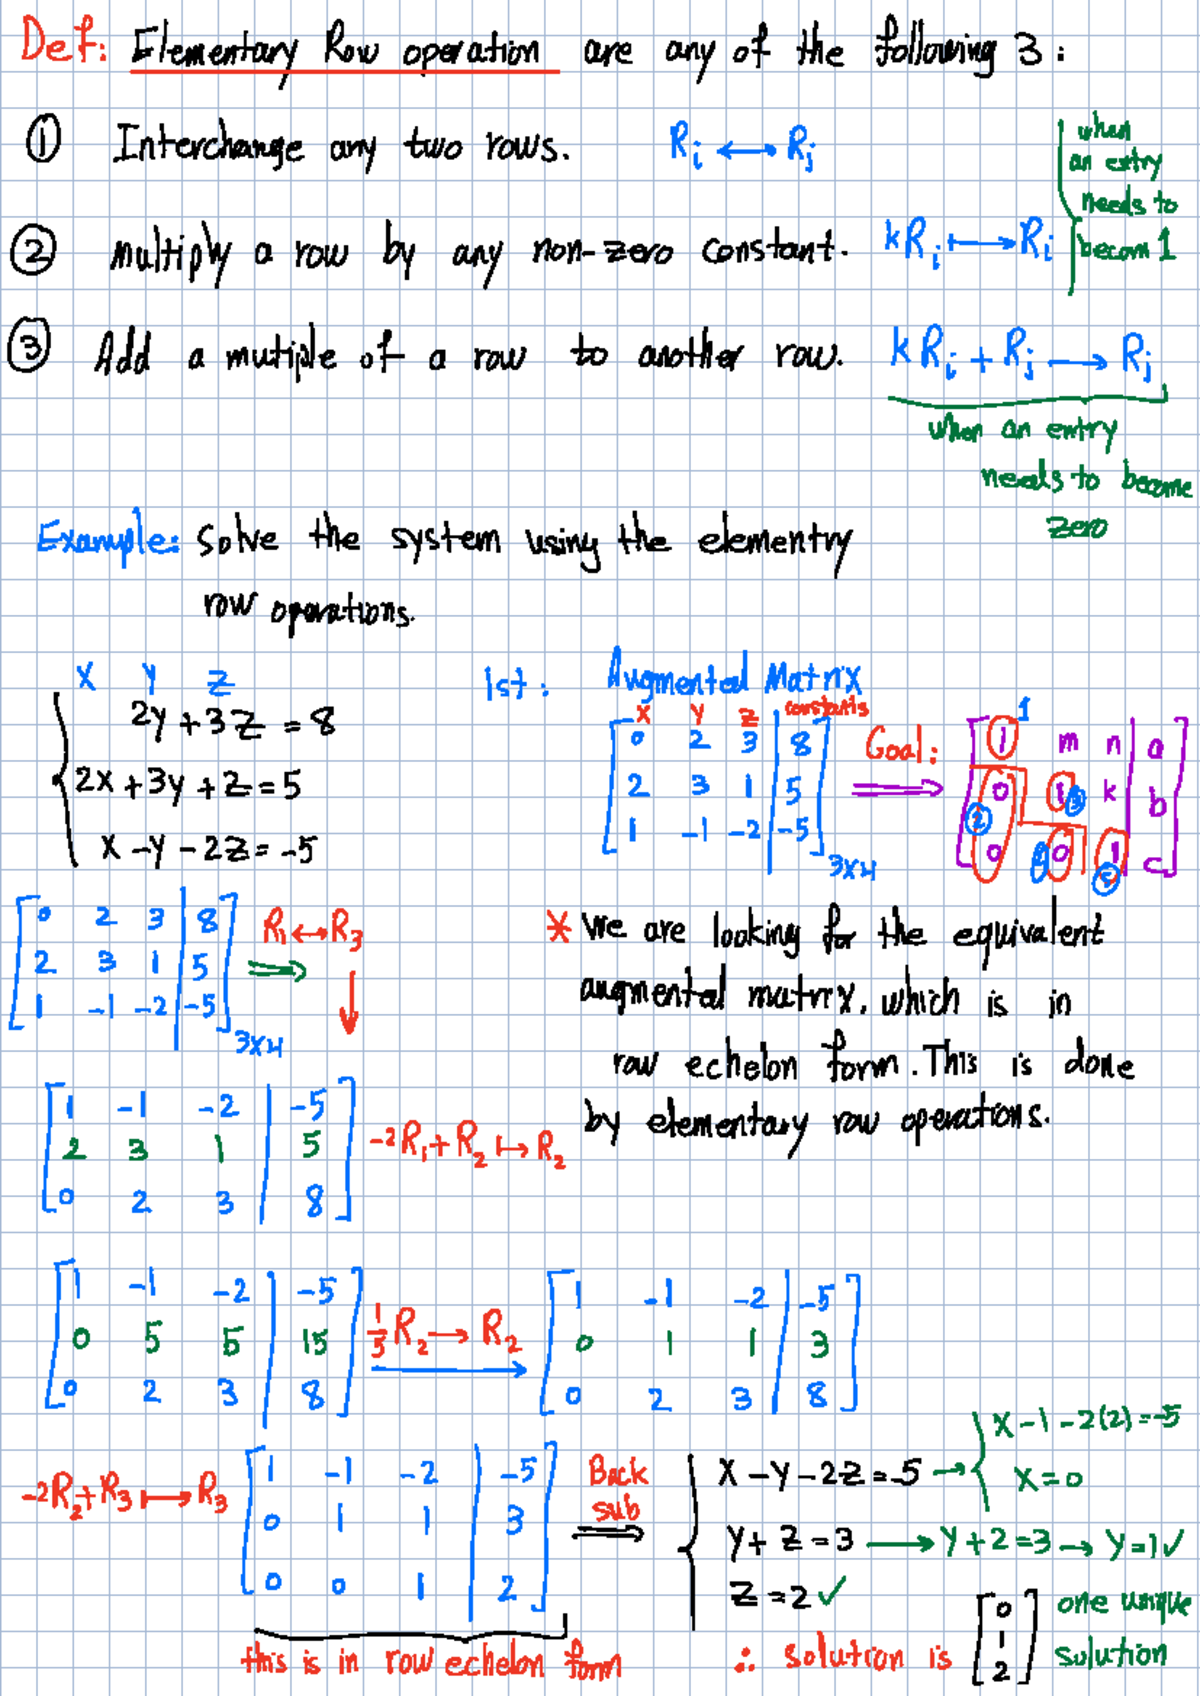 Def: Elementary Row operation are any of the following 3:
① Interchange any two rows. Ri ⟷ Rj
② multiply a row by any non-zero constant. kRi ⟼ Ri
when
an entry
needs to
becom 1
③ Add a mutiple of a row to another row. kRi + Rj ⟶ Rj
when an entry
needs to become
zero
Example: Solve the system using the elementry
row operations.
x y z
2y + 3z = 8
2x + 3y + z = 5
x - y - 2z = -5
1st: Augmented Matrix
x y z constants
0 2 3 | 8
2 3 1 | 5
1 -1 -2 | -5
3x4
⟹ Goal:
1 m n | a
0 1 k | b
0 0 1 | c
1
②
③
0 2 3 | 8
2 3 1 | 5
1 -1 -2 | -5
3x4
R1 ↔ R3
⟹ ↓
* We are looking for the equivalent
augmental matrix, which is in
row echelon form. This is done
by elementary row operations.
1 -1 -2 | -5
2 3 1 | 5
0 2 3 | 8
-2R1 + R2 ↦ R2
1 -1 -2 | -5
0 5 5 | 15
0 2 3 | 8
1/5 R2 → R2
1 -1 -2 | -5
0 1 1 | 3
0 2 3 | 8
-2R2 + R3 ⟼ R3
1 -1 -2 | -5
0 1 1 | 3
0 0 1 | 2
this is in row echelon form
Back
sub
⟹
x - y - 2z = -5 → x - 1 - 2(2) = -5
x = 0
y + z = 3 → y + 2 = 3 → y = 1 ✓
z = 2 ✓
∴ solution is
0
1
2
one unique
solution